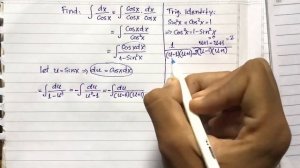 Find: ∫ dx/Cosx = ∫ Cosx/Cosx · dx/Cosx
= ∫ Cosx dx/Cos²x
= ∫ Cosxdx/1-Sin²x
let u=Sinx ⇒ du=Cosxdx
= ∫ du/1-u² = -∫ du/u²-1 = -∫ du/(u-1)(u+1)
Trig. Identity:
Sin²x+Cos²x=1
⇒ Cos²x=1-Sin²x
1/(u-1)(u+1) = u+1-u+1/(u-1)(u+1) =2